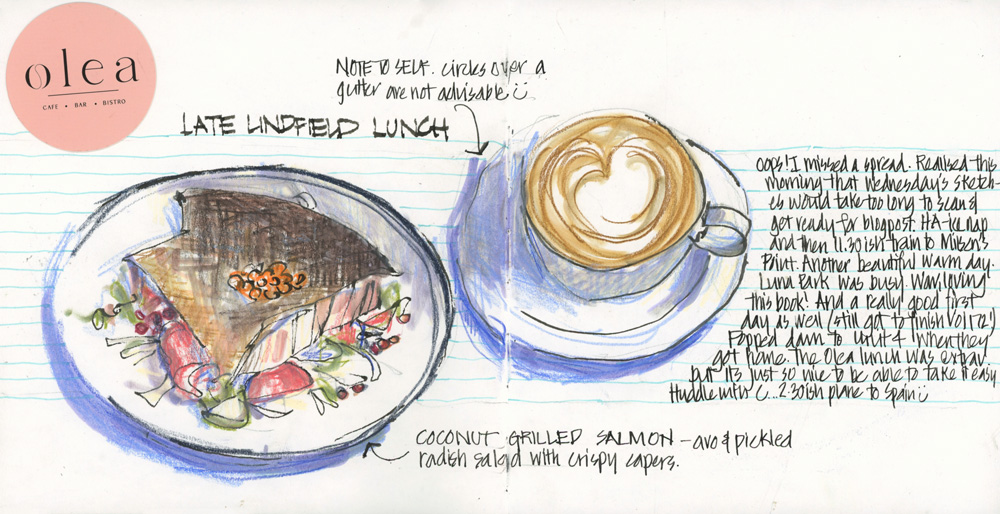 olea
CAFE • BAR • BISTRO
NOTE TO SELF. circles over a
gutter are not advisable
LATE LINDFIELD LUNCH
oops! I missed a spread. Realised this
morning that Wednesday's sketch-
es would take too long to scan &
get ready for blogpost. HA-
and then 11.30ish train to Milson's
Point. Another beautiful warm day.
Luna Park was busy. Way loving
this book! And a really good first
day as well (still got to finish
Popped down to Unit 4 when they
got home. The Olea lunch was extrav.
but it's just so nice to be able to take it easy
Huddle ... 2.30ish plane to Spain
COCONUT GRILLED SALMON - avo & pickled
radish salad with crispy capers.